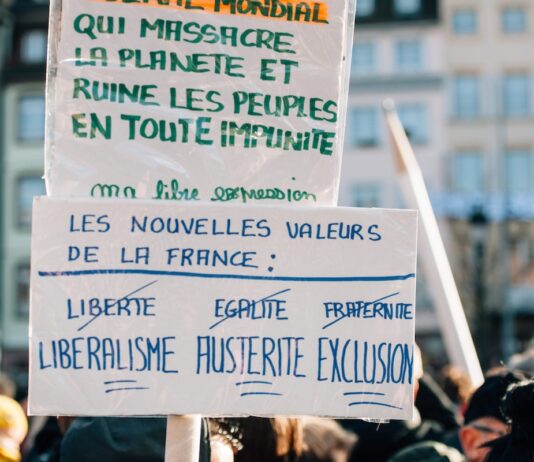 MONDIAL
QUI MASSACRE
LA PLANETE ET
RUINE LES PEUPLES
EN TOUTE IMPUNITE
ma libre expression
LES NOUVELLES VALEURS
DE LA FRANCE :
LIBERTE EGALITE FRATERNITE
LIBERALISME AUSTERITE EXCLUSION